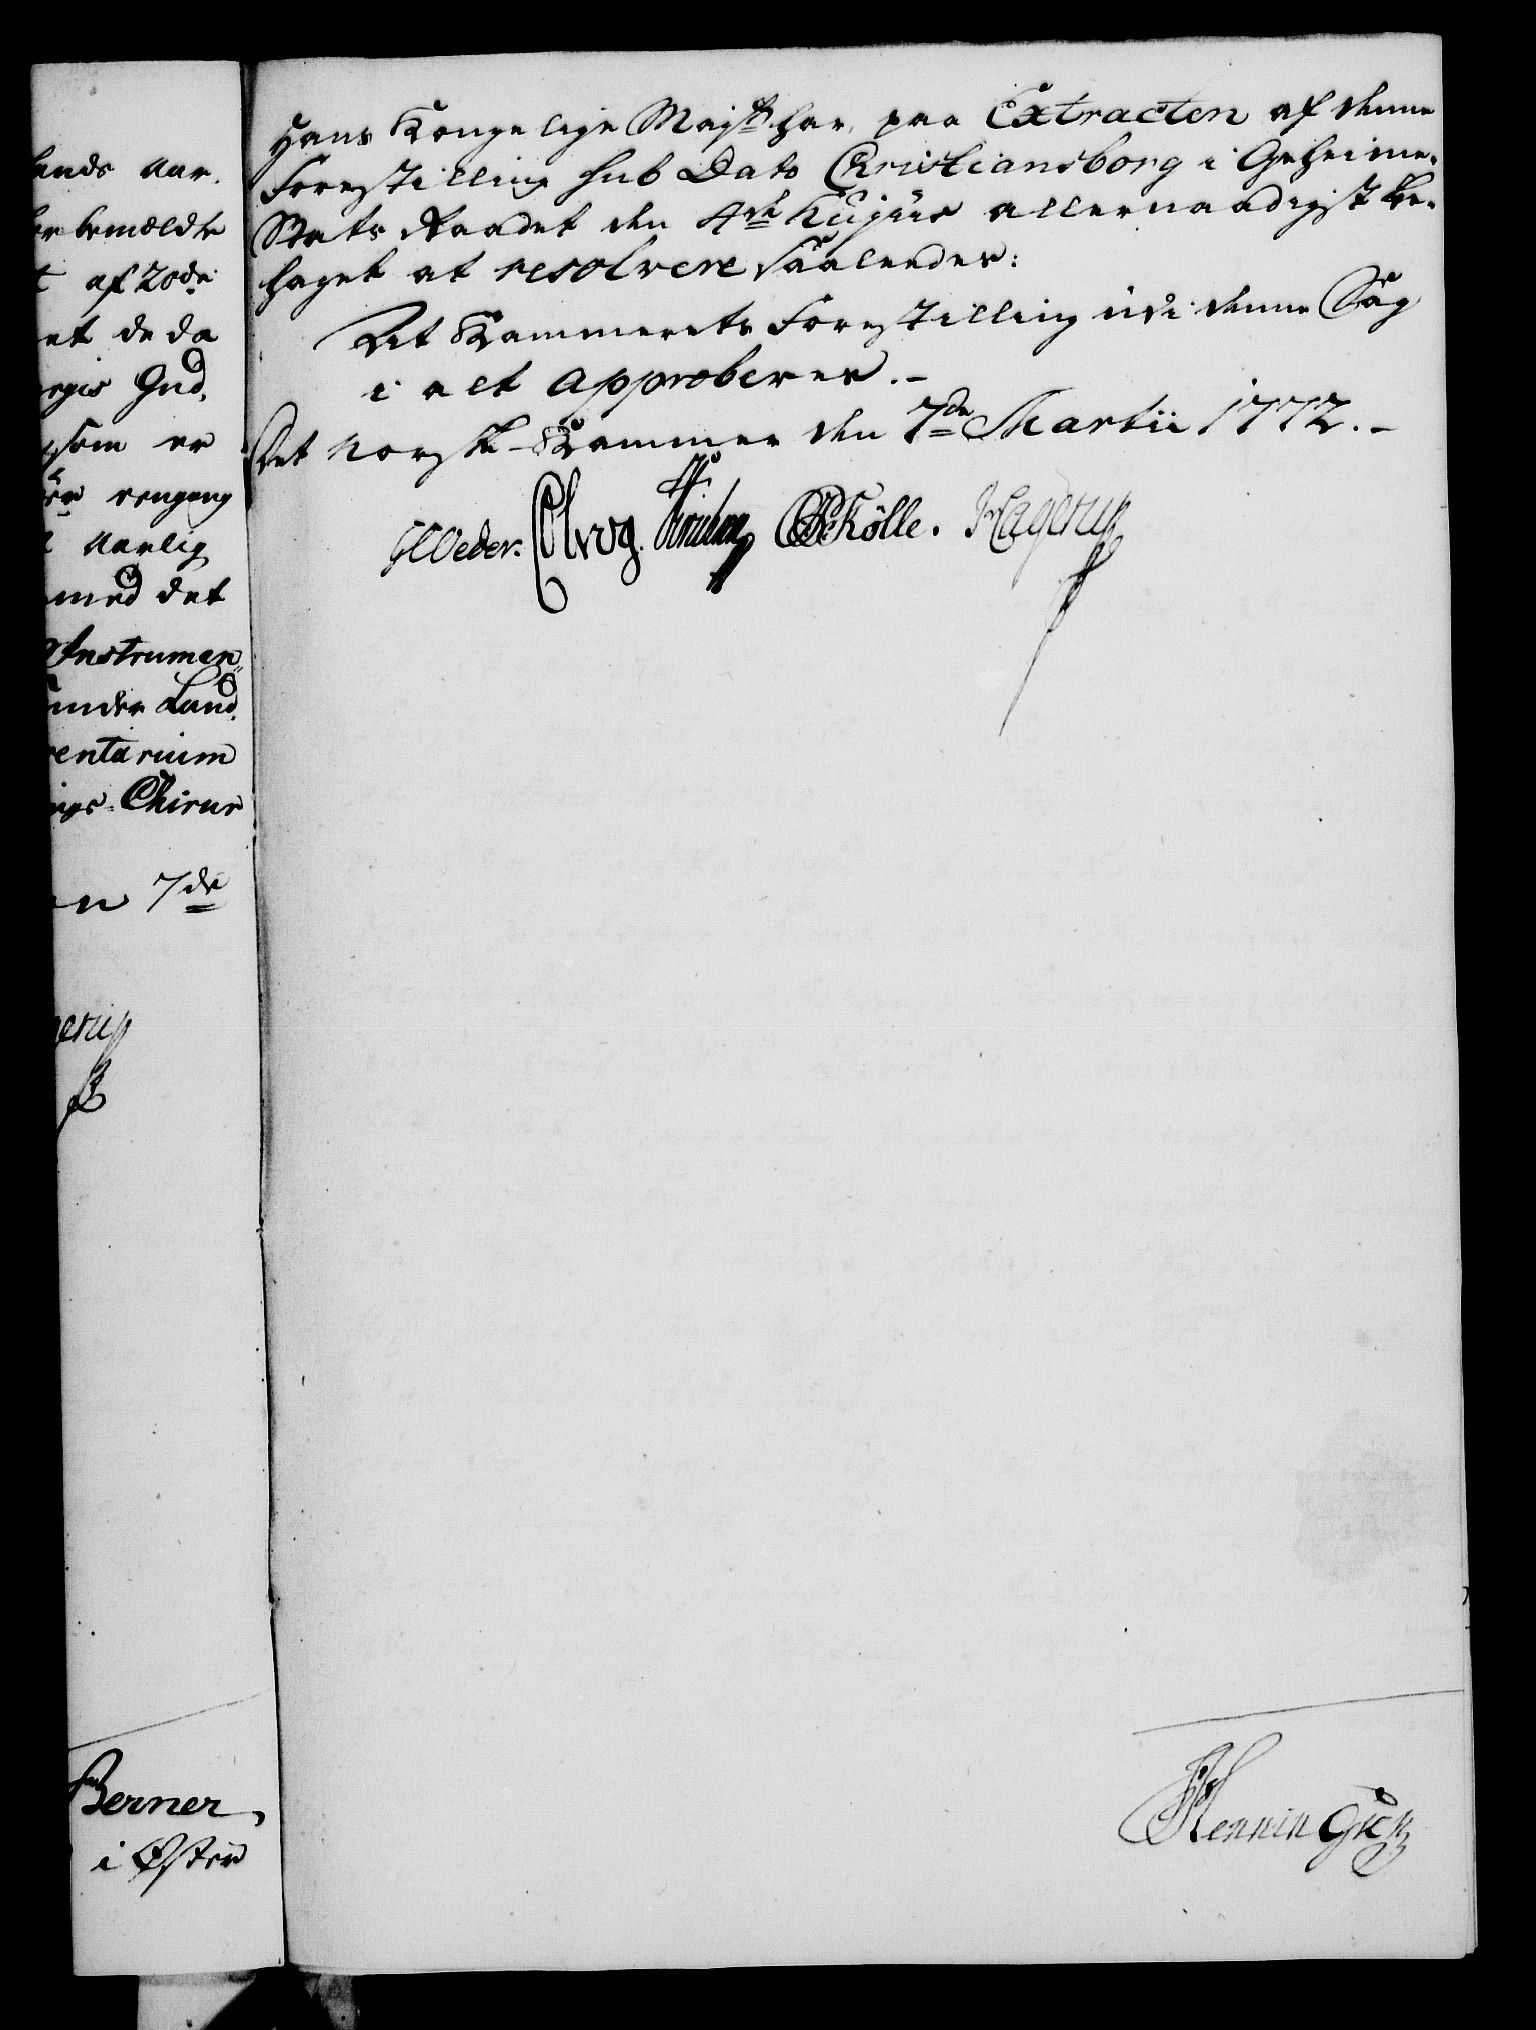 lands Aar.
bemældte
af 20de
et de da
regis Gud.
som er
eengang
Aarlig
med det
Instrumen„
under Land.
ventarium
Chirur
en 7de
gerup
Berner,
i Øster
Hans Kongelige Majst har, paa Extracten af denne
Forestilling sub Dato Christiansborg i Geheime-
Stats Raadet den 4de hujus allernaadigst be-
haget at resolvere saaledes:
Det Kammerets Forestilling udi denne Sag
i alt approberes.-
Det Norske-Kammer den 7de Martii 1772.-
GWeder. Holle. Hagerup
Henningsen